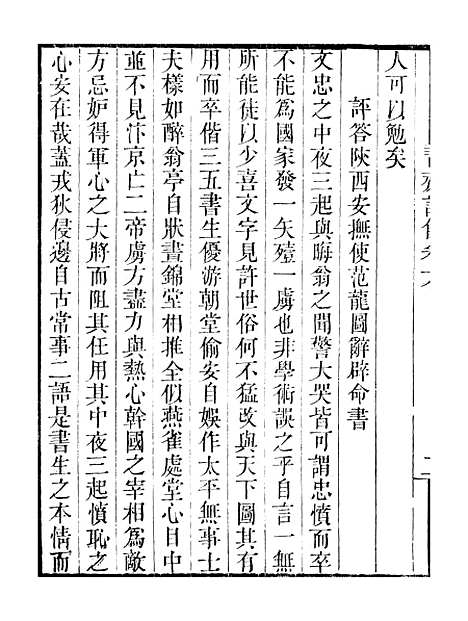 人可以勉矣
評答陜西安撫使范龍圖辭辟命書
文忠之中夜三起與晦翁之聞警大哭皆可謂忠憤而卒
不能為國家發一矢殪一虜也非學術誤之乎自言一無
所能徒以少喜文字見許世俗何不猛改與天下圖其有
用而卒偕三五書生優游朝堂偷安自娛作太平無事士
夫樣如醉翁亭自狀晝錦堂相推全似燕雀處堂心目中
並不見汴京亡二帝虜方盡力與熱心幹國之宰相為敵
方忌妒得軍心之大將而阻其任用其中夜三起憤恥之
心安在哉蓋戎狄侵邊自古常事二語是書生之本情而